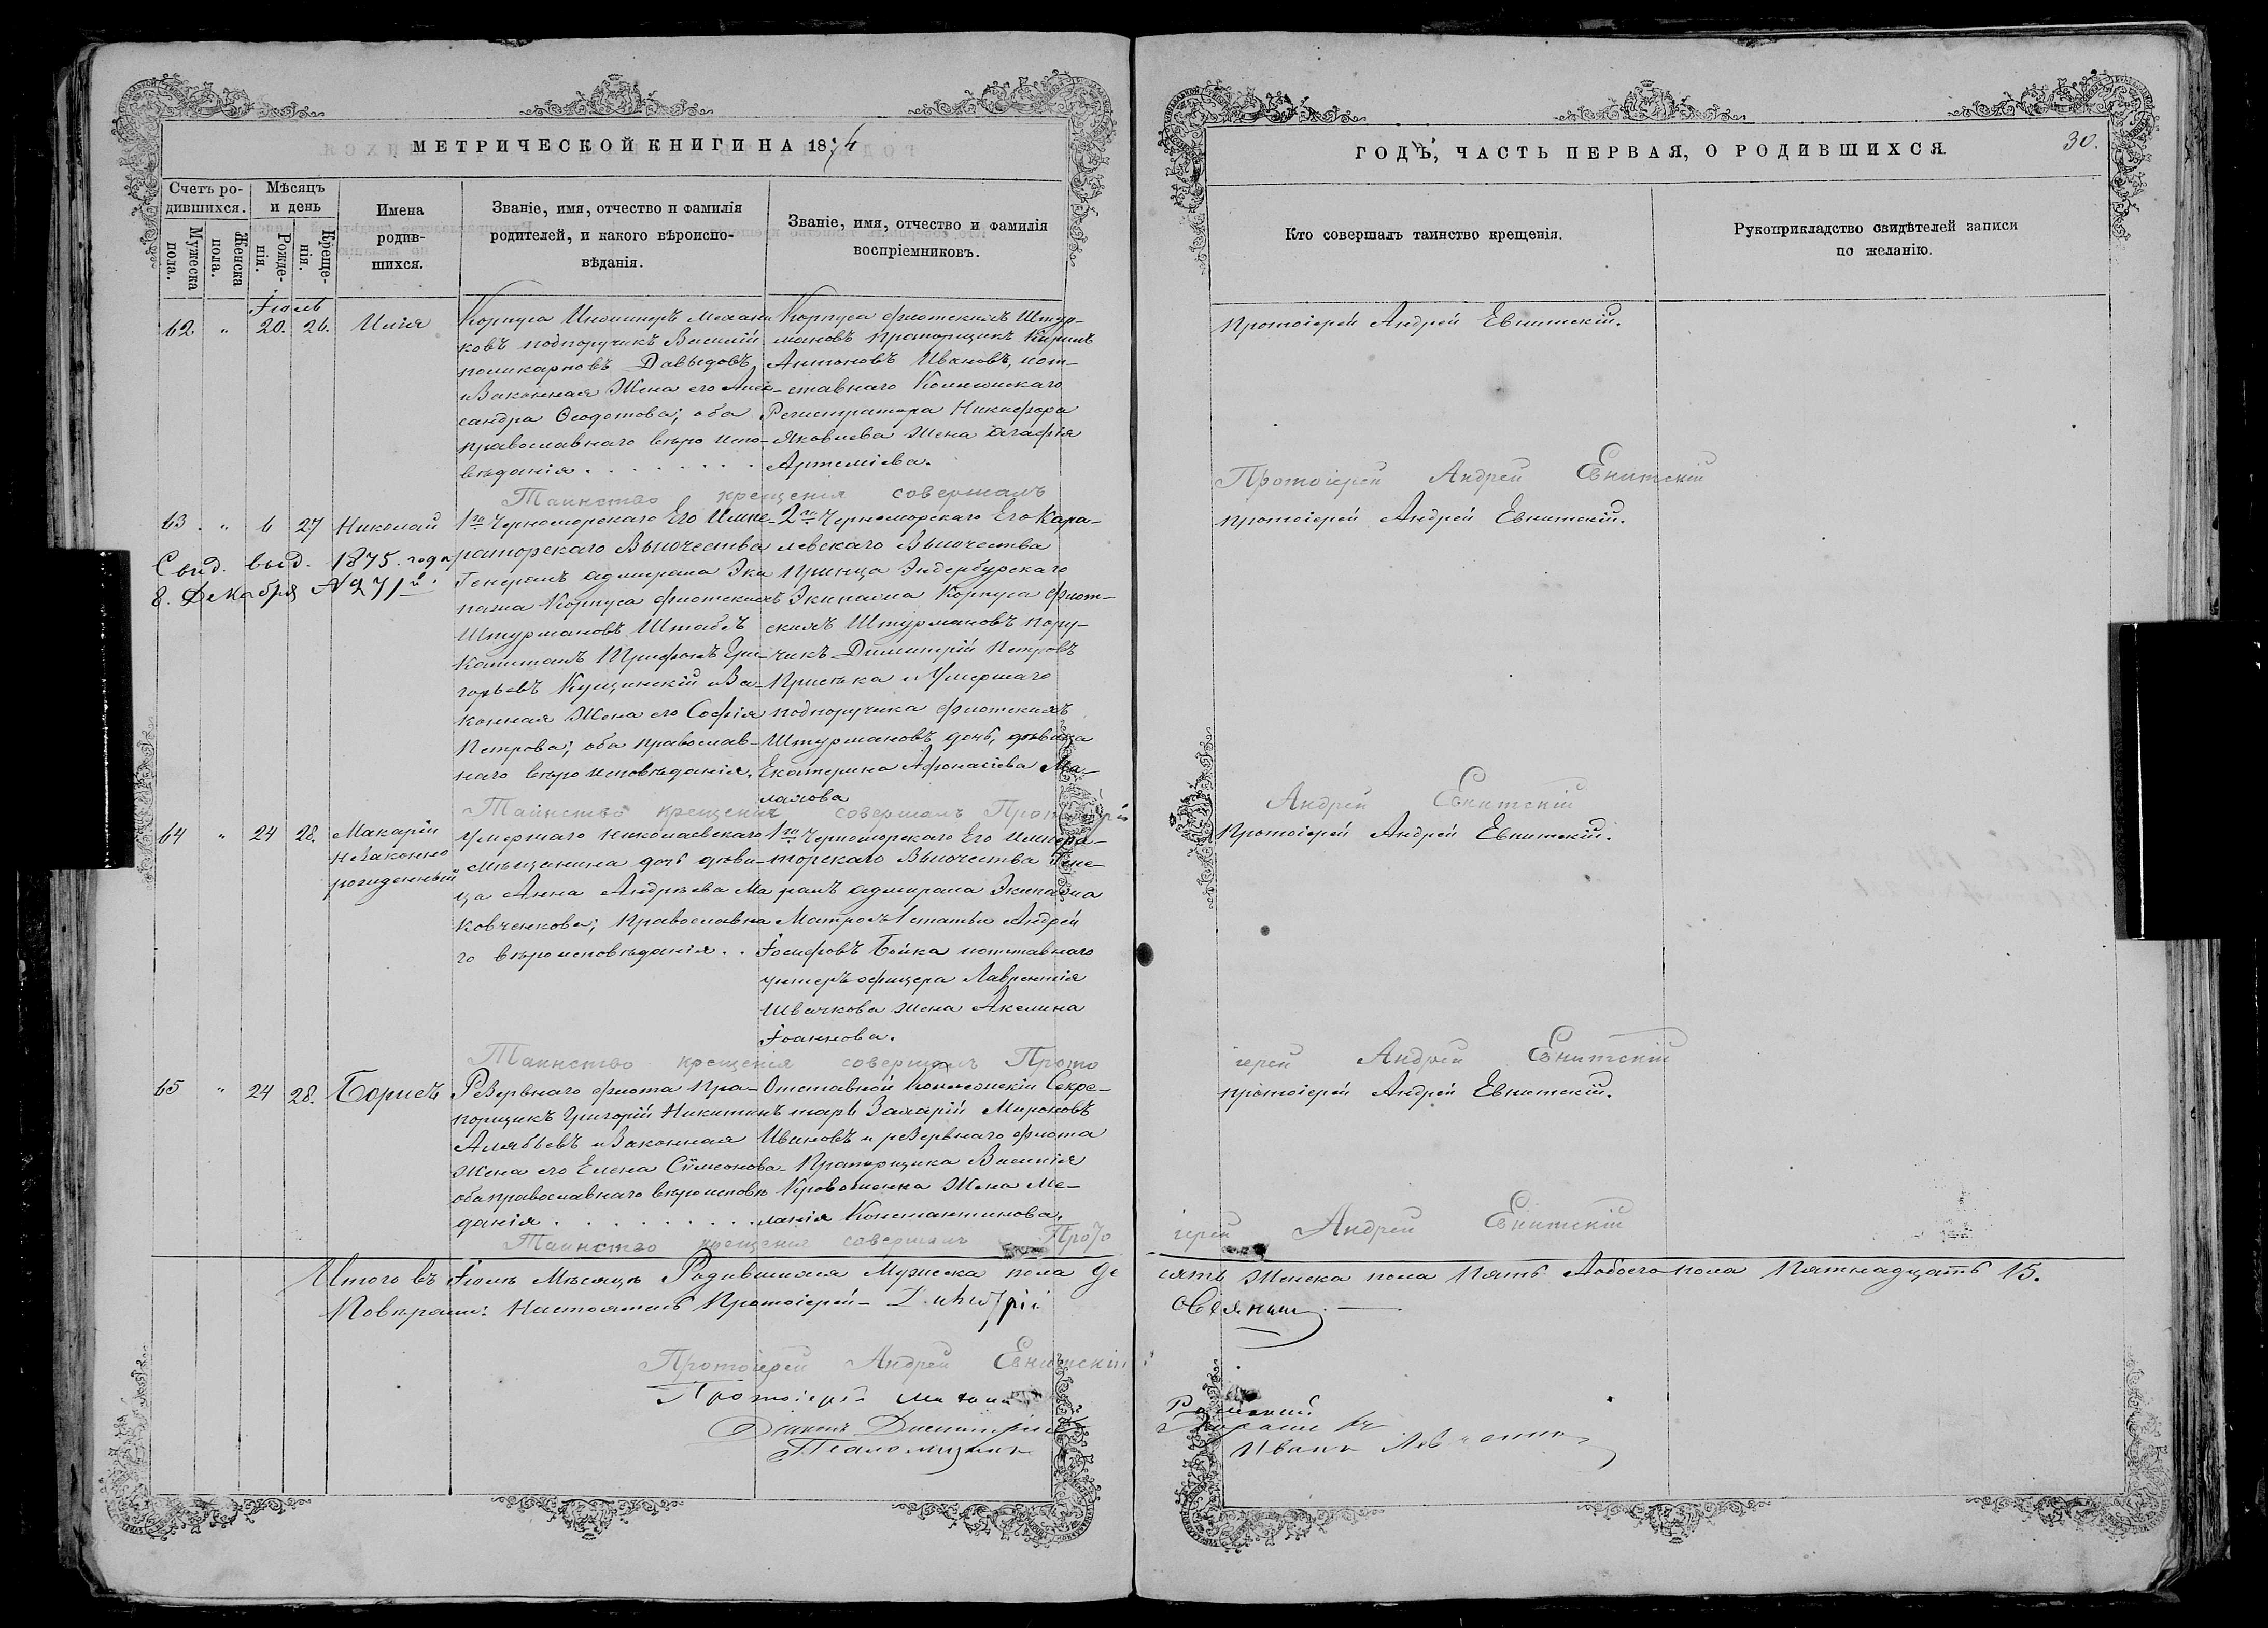 МЕТРИЧЕСКОЙ КНИГИ НА 1874
Счетъ ро-
дившихся.
Мужеска
пола.
Женска
пола.
Мѣсяцъ
и день
Рожде-
нія.
Креще-
нія.
Имена
родив-
шихся.
Званіе, имя, отчество и фамилія
родителей, и какого вѣроиспо-
вѣданія.
Званіе, имя, отчество и фамилія
воспріемниковъ.
Іюль
62. " 20. 26. Илія
Корпуса Инжинеръ Механи
ковъ подпоручикъ Василій
поликарповъ Давыдовъ,
изаконная Жена его Алек-
сандра Ѳеодотова; оба
православнаго вѣро испо-
вѣданія . . . . . . .
Корпуса флотскихъ Штур-
мановъ Прапорщикъ Кирилъ
Антоновъ Ивановъ, иот-
ставнаго Коллежскаго
Регистратора Никифора
Яковлева жена Агафія
Артеміева.
Таинство крещенія совершалъ
63. " 6 27 Николай
Свид. выд. 1875. года
8. Декабря №271й.
1го Черноморскаго Его Импе-
раторскаго Высочества
Генералъ адмирала Эки
пажа Корпуса флотскихъ
Штурмановъ Штабсъ
Капитанъ Трифонъ Гри-
горьевъ Кущинскій иЗа-
конная Жена его Софія
Петрова; оба православ-
наго вѣро исповѣданія.
2го Черноморскаго Его Кора-
левскаго Высочества
Принца Эндербурскаго
Экипажа Корпуса Флот-
скихъ Штурмановъ пору-
чикъ Димитрій Петровъ
и Умершаго
подпоручика флотскихъ
Штурмановъ дочь, дѣвица
Екатерина Афонасіева Ма-
Таинство крещенія совершалъ Протоіерей
64 " 24 28. Макарій
Незаконно
рожденный
Умершаго николаевскаго
мѣщанина дочь дѣви-
ца Анна Андрѣева Ма
ковченкова; Православна
го вѣро исповѣданія . .
1го Черноморскаго Его Импера-
торскаго Высочества Гене-
ралъ адмирала Экипажа
Матросъ 1 статьи Андрей
Іосифовъ Бойка иотставнаго
унтеръ офицера Лаврентія
Швачкова жена Акелина
Іоаннова.
Таинство крещенія совершалъ Прото
65 " 24 28. Борисъ
Резервнаго флота Пра-
порщикъ Григорій Никитинъ
Алябьевъ изаконная
Жена его Елена Сімеонова
оба православнаго вѣроисповѣ
данія . . . . . . . . .
Отставной Коллежскій Секре-
тарь Захарій Мироновъ
Ивановъ и резервнаго флота
Прапорщика Василія
Кровошенка Жена Ме-
ланія Константинова.
Таинство крещенія совершалъ Прото
Итого въ Іюлѣ Мѣсяцѣ Родившихся Мужеска пола де
Повѣрялъ: Настоятель Протоіерей
Протоіерей Андрей Евнитскій
Протоіерей
Псаломщикъ
ГОДЪ, ЧАСТЬ ПЕРВАЯ, О РОДИВШИХСЯ.
30.
Кто совершалъ таинство крещенія.
Рукоприкладство свидѣтелей записи
по желанію.
протоіерей Андрей Евнитскій.
Протоіерей Андрей Евнитскій
протоіерей Андрей Евнитскій.
Андрей Евнитскій
протоіерей Андрей Евнитскій.
іерей Андрей Евнитскій
протоіерей Андрей Евнитскій.
іерей Андрей Евнитскій
сять Женска пола Пять Аобоего пола Пятнадцать 15.
Иванъ